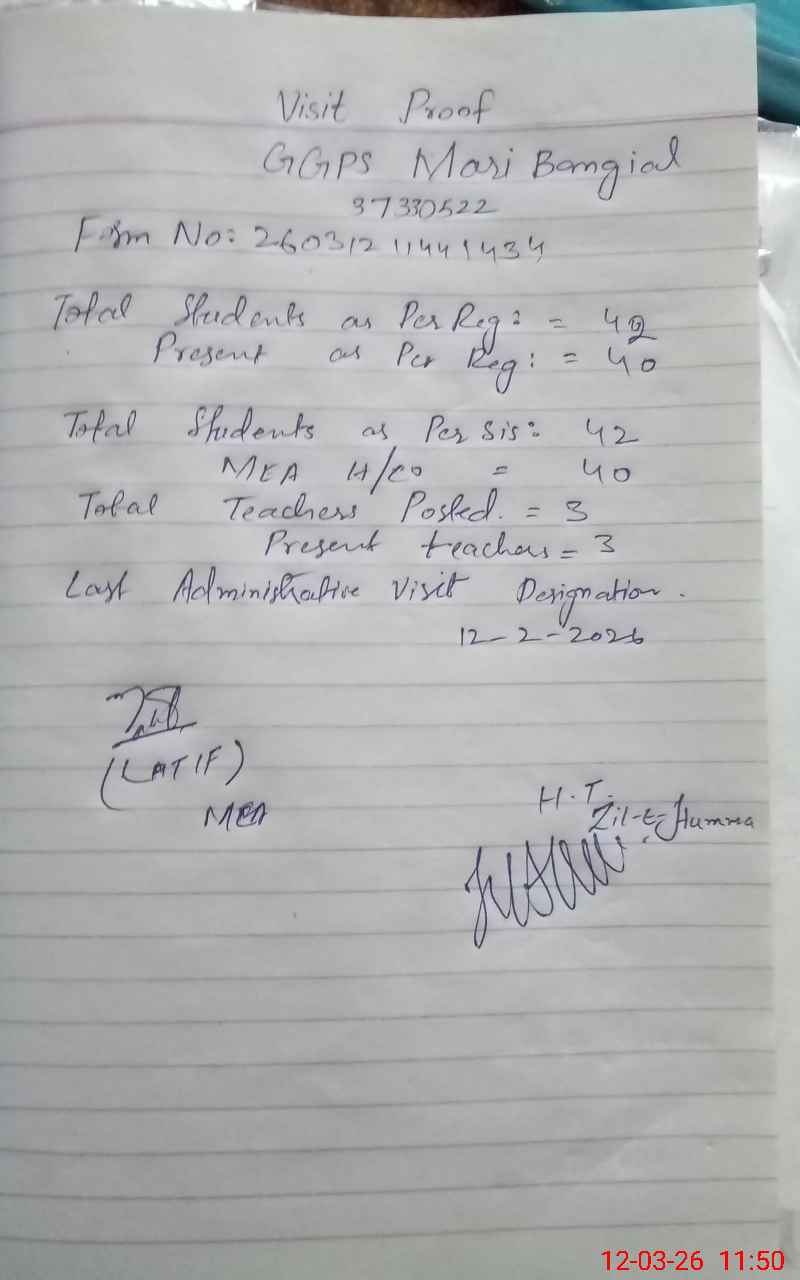 Visit Proof
GGPS Mari Bangial
37330522
Form No: 260312 11441434
Total Students as Per Reg: = 42
Present as Per Reg: = 40
Total Students as Per Sis: 42
MEA H/Co = 40
Total Teachers Posted. = 3
Present teachers = 3
Last Administrative Visit Designation.
12-2-2026
(LATIF)
MEA
H.T.
Zil-e-Humma
12-03-26 11:50